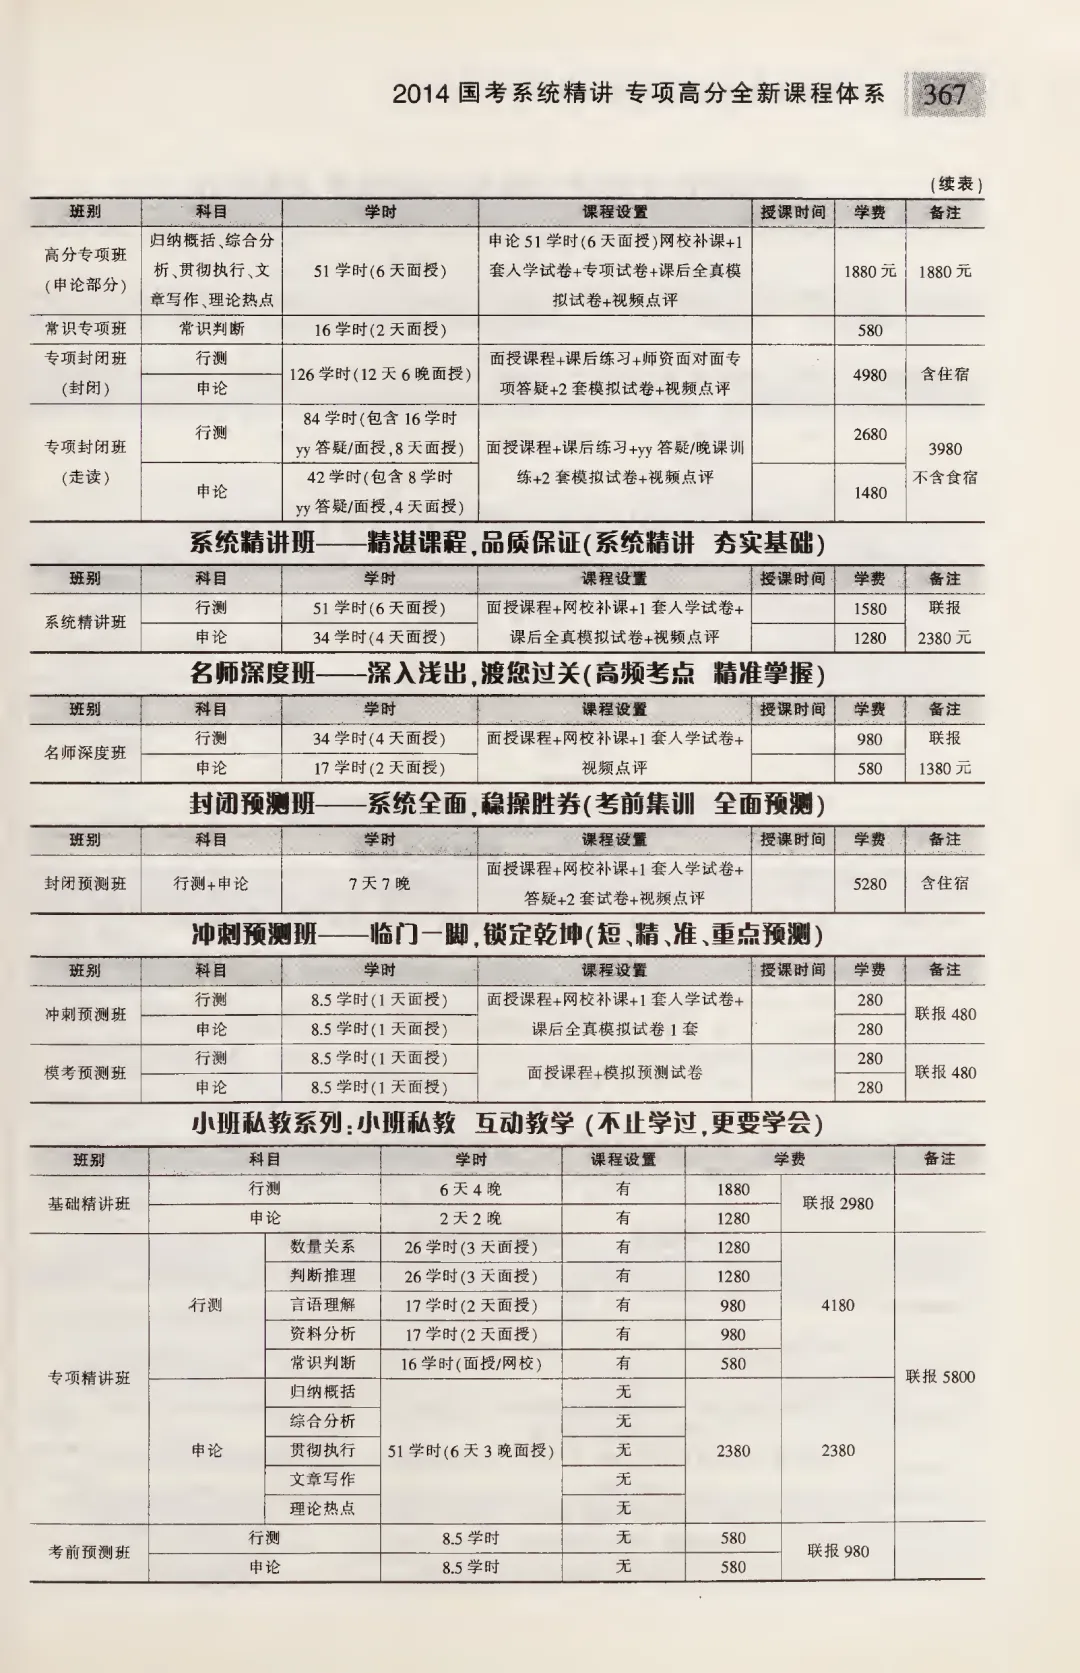 2014 国考系统精讲 专项高分全新课程体系 367
(续表)
班别 科目 学时 课程设置 授课时间 学费 备注
高分专项班
(申论部分)
归纳概括、综合分
析、贯彻执行、文
章写作、理论热点
51 学时(6 天面授)
申论 51 学时(6 天面授)网校补课+1
套入学试卷+专项试卷+课后全真模
拟试卷+视频点评
1880 元 1880 元
常识专项班 常识判断 16 学时(2 天面授) 580
专项封闭班
(封闭)
行测
申论
126 学时(12 天 6 晚面授)
面授课程+课后练习+师资面对面专
项答疑+2 套模拟试卷+视频点评
4980 含住宿
专项封闭班
(走读)
行测
84 学时(包含 16 学时
yy 答疑/面授,8 天面授)
申论
42 学时(包含 8 学时
yy 答疑/面授,4 天面授)
面授课程+课后练习+yy 答疑/晚课训
练+2 套模拟试卷+视频点评
2680
1480
3980
不含食宿
系统精讲班——精湛课程,品质保证(系统精讲 夯实基础)
班别 科目 学时 课程设置 授课时间 学费 备注
系统精讲班
行测 51 学时(6 天面授) 面授课程+网校补课+1 套入学试卷+ 1580 联报
申论 34 学时(4 天面授) 课后全真模拟试卷+视频点评 1280 2380 元
名师深度班——深入浅出,渡您过关(高频考点 精准掌握)
班别 科目 学时 课程设置 授课时间 学费 备注
名师深度班
行测 34 学时(4 天面授) 面授课程+网校补课+1 套入学试卷+ 980 联报
申论 17 学时(2 天面授) 视频点评 580 1380 元
封闭预测班——系统全面,稳操胜券(考前集训 全面预测)
班别 科目 学时 课程设置 授课时间 学费 备注
封闭预测班 行测+申论 7 天 7 晚
面授课程+网校补课+1 套入学试卷+
答疑+2 套试卷+视频点评
5280 含住宿
冲刺预测班——临门一脚,锁定乾坤(短、精、准、重点预测)
班别 科目 学时 课程设置 授课时间 学费 备注
冲刺预测班
行测 8.5 学时(1 天面授) 面授课程+网校补课+1 套入学试卷+ 280
申论 8.5 学时(1 天面授) 课后全真模拟试卷 1 套 280
联报 480
模考预测班
行测 8.5 学时(1 天面授) 280
申论 8.5 学时(1 天面授) 280
面授课程+模拟预测试卷
联报 480
小班私教系列:小班私教 互动教学 (不止学过,更要学会)
班别 科目 学时 课程设置 学费 备注
基础精讲班
行测 6 天 4 晚 有 1880
申论 2 天 2 晚 有 1280
联报 2980
专项精讲班
行测
数量关系 26 学时(3 天面授) 有 1280
判断推理 26 学时(3 天面授) 有 1280
言语理解 17 学时(2 天面授) 有 980
资料分析 17 学时(2 天面授) 有 980
常识判断 16 学时(面授/网校) 有 580
4180
申论
归纳概括 无
综合分析 无
贯彻执行 51 学时(6 天 3 晚面授) 无 2380 2380
文章写作 无
理论热点 无
联报 5800
考前预测班
行测 8.5 学时 无 580
申论 8.5 学时 无 580
联报 980